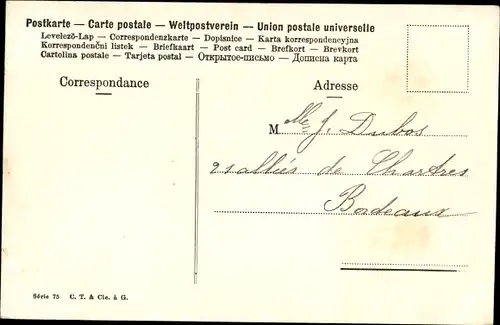 Postkarte — Carte postale — Weltpostverein — Union postale universelle
Levelező-Lap — Correspondenzkarte — Dopisnice — Karta korrespondencyjna
Korrespondenční listek — Briefkaart — Post card — Brefkort — Brevkort
Cartolina postale — Tarjeta postal — Открытое-письмо — Дописна карта
Correspondance
Adresse
M Elle J. Dubos
21 allées de Chartres
Bordeaux
Série 75 C. T. & Cie. à G.